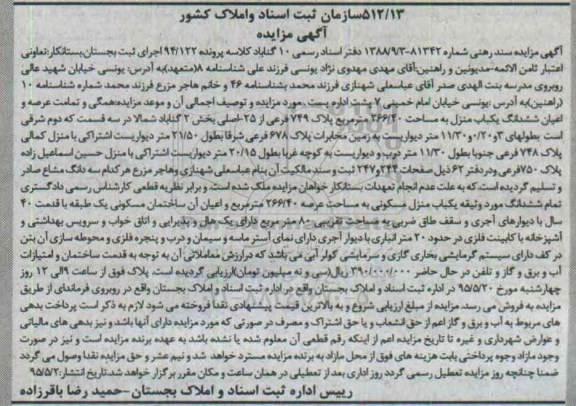 ۵۱۲/۱۳سازمان ثبت اسناد واملاک کشور
آگهی مزایده
آگهی مزایده سند رهنی شماره ۸۱۳۴۲-۱۳۸۸/۹/۳ دفتر اسناد رسمی ۱۰ گناباد کلاسه پرونده ۹۴/۱۲۲ اجرای ثبت بجستان،بستانکار:تعاونی
اعتبار ثامن الائمه-مدیونین و راهنین:آقای مهدی مهدوی نژاد یونسی فرزند علی شناسنامه ۸(متعهد)به آدرس: یونسی خیابان شهید عالی
روبروی مدرسه بنت الهدی صدر آقای عباسعلی شهنازی فرزند محمد بشناسنامه ۴۶ و خانم هاجر مزرع فرزند محمد شماره شناسنامه ۱۰
(راهنین)به آدرس :یونسی خیابان امام خمینی ۷ پشت اداره پست .مورد مزایده و توصیف اجمالی آن و موعد مزایده:همگی و تمامت عرصه و
اعیان ششدانگ یکباب منزل به مساحت ۲۶۶/۴۰ مترمربع پلاک ۷۴۹ فرعی از ۲۵-اصلی بخش ۲ گناباد شمالا در سه قسمت که دوم شرقی
است بطولهای ۳و۰/۲۰و۱۱/۳۰ متر دیواریست به زمین مخابرات پلاک ۶۷۸ فرعی شرقا بطول ۲۱/۵۰ متر دیواریست اشتراکی با منزل کمالی
پلاک ۷۴۸ فرعی جنوبا بطول ۱۱/۳۰ متر درب و دیواریست به کوچه غربا بطول ۲۰/۱۵ متر دیواریست اشتراکی با منزل حسین اسماعیل زاده
پلاک ۷۵۰فرعی ودردفتر ۶۲ ذیل صفحات ۲۴۴و۲۴۷ ثبت و سند مالکیت آن بنام عباسعلی شهنازی وهاجر مزرع هرکدام سه دانگ مشاع صادر
و تسلیم گردیده است که به علت عدم انجام تعهدات بستانکار خواهان مزایده ملک شده است. و برابر نظریه قطعی کارشناس رسمی دادگستری
تمام ششدانگ مورد وثیقه یکباب منزل مسکونی به مساحت عرصه ۲۶۶/۴۰ مترمربع و اعیان آن ساختمان مسکونی یک طبقه با قدمت ۴۰
سال با دیوارهای آجری و سقف طاق ضربی به مساحت تقریبی ۸۰ متر مربع دارای یک هال و پذیرایی و اتاق خواب و سرویس بهداشتی و
آشپزخانه با کابینت فلزی در حدود ۲۰ متر انباری با دیوار آجری دارای نمای آستر ماسه و سیمان و درب و پنجره فلزی و محوطه سازی آن بتن
در کف دارای سیستم گرمایشی بخاری گازی و سرمایشی کولر آبی می باشد که درارزش معاملاتی آن به توجه به قدمت ساختمان و امتیازات
آب و برق و گاز و تلفن در حال حاضر ۳۹۰/۰۰۰/۰۰۰ ریال(سی و نه میلیون تومان)ارزیابی گردیده است. پلاک فوق از ساعت ۹الی ۱۲ روز
چهارشنبه مورخ ۹۵/۵/۲۰ در اداره ثبت اسناد و املاک بجستان واقع در اداره ثبت اسناد و املاک بجستان واقع در روبروی فرمانداری از طریق
مزایده به فروش می رسد. مزایده از مبلغ ارزیابی شروع و به بالاترین قیمت پیشنهادی نقدا فروخته می شود لازم به ذکر است پرداخت بدهی
های مربوط به آب و برق و گاز اعم از حق انشعاب و یا حق اشتراک و مصرف در صورتی که مورد مزایده دارای آنها باشد و نیز بدهی های مالیاتی
و عوارض شهرداری و غیره تا تاریخ مزایده اعم از اینکه رقم قطعی آن معلوم شده یا نشده باشد به عهده برنده مزایده است و نیز در صورت
وجود مازاد وجوه پرداختی بابت هزینه های فوق از محل مازاد به برنده مزایده مسترد خواهد شد و نیم عشر و حق مزایده نقدا وصول می گردد
ضمنا چنانچه روز مزایده تعطیل رسمی گردد روز اداری بعد از تعطیلی در همان ساعت و مکان مقرر برگزار خواهد شد.تاریخ انتشار:۹۵/۵/۲
رییس اداره ثبت اسناد و املاک بجستان -حمید رضا باقرزاده